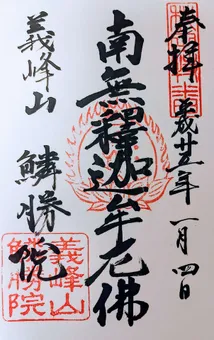 奉拜
平成廿五年 一月四日
南無釋迦牟尼佛
義峰山 鱗勝院
義峰山
鱗勝院